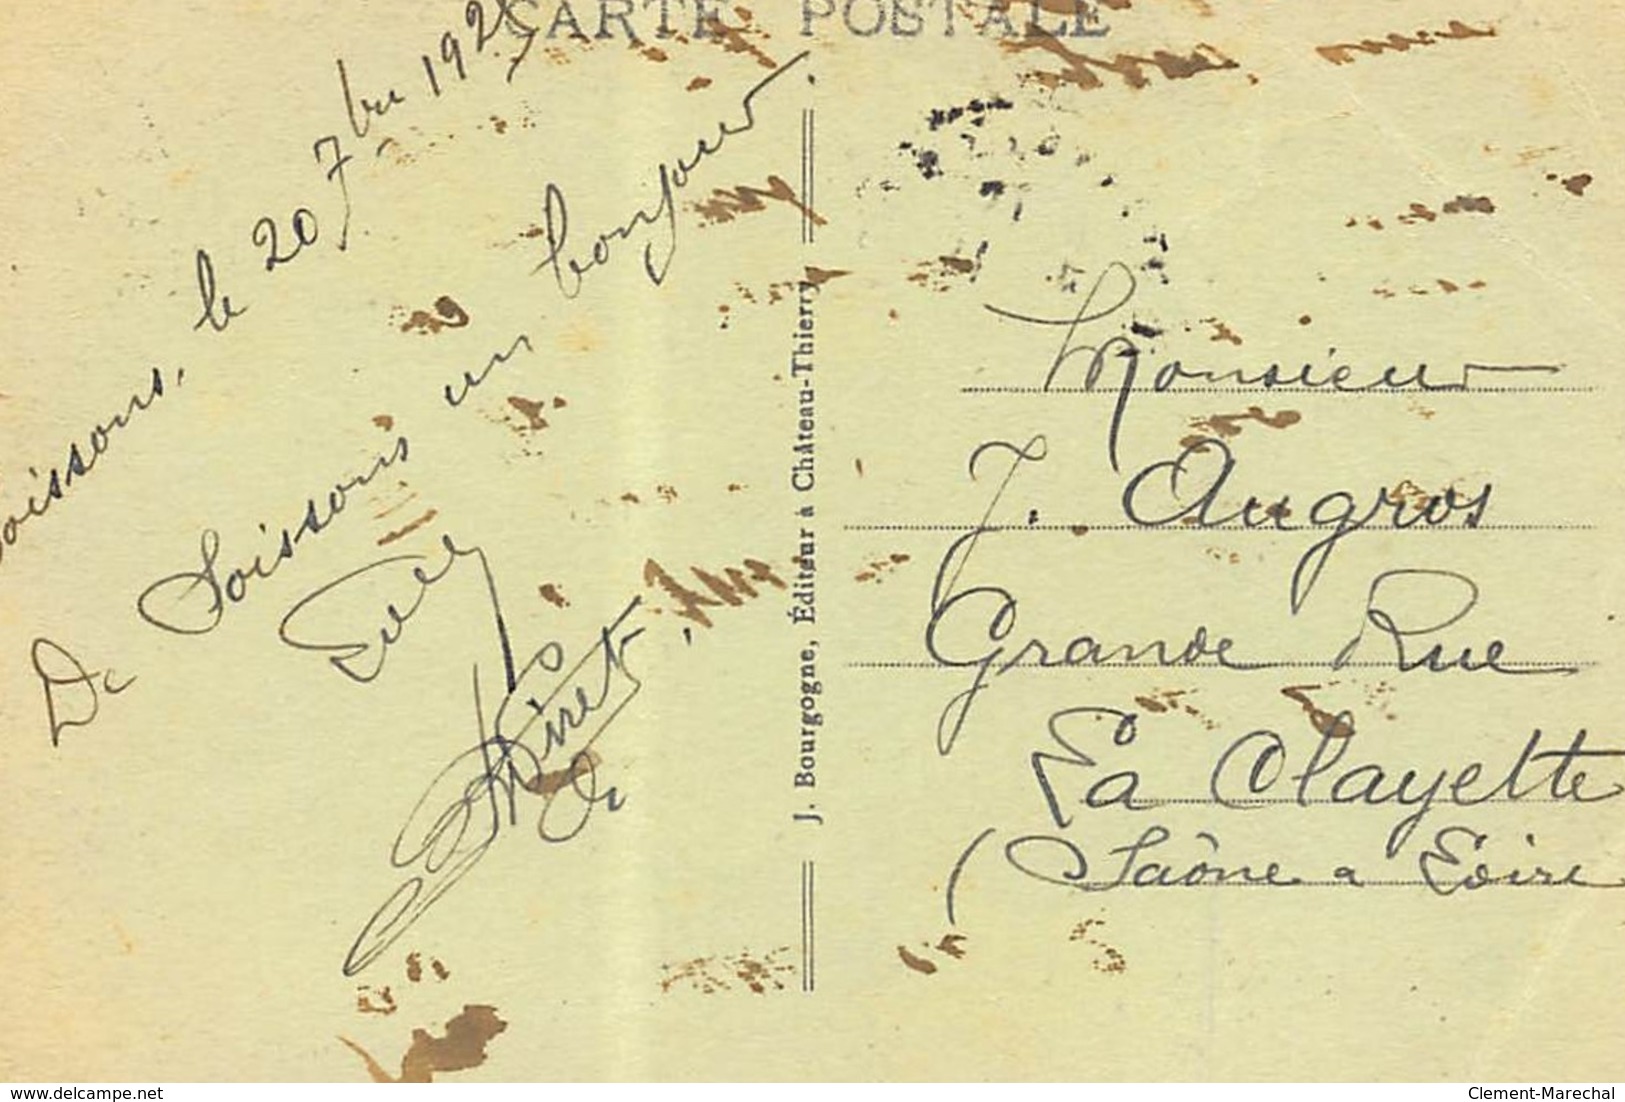 CARTE POSTALE
Soissons, le 20 7bre 192
De Soissons un bonjour.
J. Bourgogne, Éditeur à Château-Thierry
Monsieur
J. Augros
Grande Rue
La Clayette
(Saône & Loire
delcampe.net
Clement-Marechal